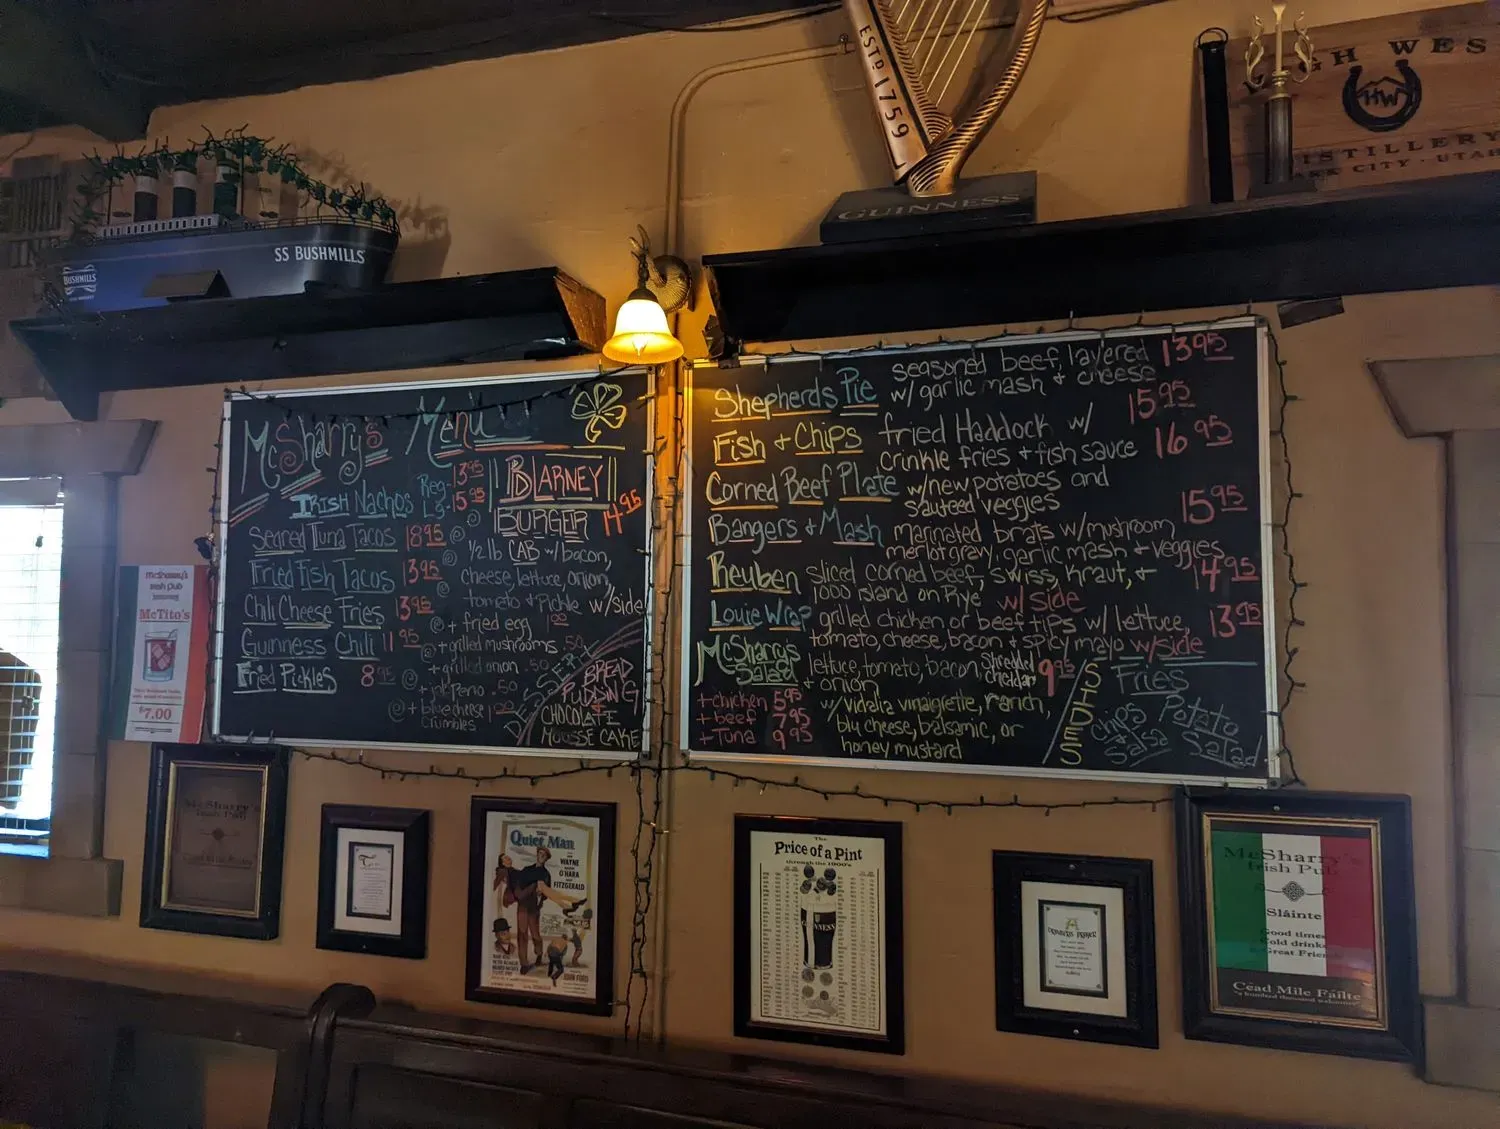 ESTD 1759
GUINNESS
GH WES
HW
ISTILLERY
CITY · UTAH
SS BUSHMILLS
BUSHMILLS
McSharry's Menu
Irish Nachos Reg- 13.95
Lg- 15.95
Seared Tuna Tacos 18.95
Fried Fish Tacos 13.95
Chili Cheese Fries 13.95
Guinness Chili 11.95
Fried Pickles 8.95
BLARNEY
BURGER 14.95
1/2 lb CAB w/bacon,
cheese, lettuce, onion,
tomato + Pickle w/side
@ + fried egg 1.00
@ + grilled mushrooms .50
+ grilled onion .50
+ jalapeno .50
+ blue cheese 1.00
crumbles
DESSERT
BREAD
PUDDING
CHOCOLATE
MOUSSE CAKE
Shepherds Pie seasoned beef, layered 13.95
w/ garlic mash + cheese
Fish + Chips fried Haddock w/ 15.95
crinkle fries + fish sauce
Corned Beef Plate w/new potatoes and 16.95
sauteed veggies
Bangers + Mash marinated brats w/mushroom 15.95
merlot gravy, garlic mash + veggies
Reuben sliced corned beef, swiss, kraut, + 14.95
1000 island on Rye w/ side
Louie Wrap grilled chicken or beef tips w/ lettuce, 13.95
tomato, cheese, bacon + spicy mayo w/side
McSharry's Salad lettuce, tomato, bacon, shredded cheddar 9.95
+ onion
+ chicken 5.95
+ beef 7.95
+ Tuna 9.95
w/ vidalia vinaigrette, ranch,
blu cheese, balsamic, or
honey mustard
SIDES
Fries
Chips + Salsa
Potato Salad
McSharry's
Irish Pub
McTito's
$7.00
McSharry's
Irish Pub
Céad Mile Fáilte
THE
Quiet Man
JOHN WAYNE
MAUREEN O'HARA
BARRY FITZGERALD
JOHN FORD
The
Price of a Pint
through the 1900's
GUINNESS
McSharry's
Irish Pub
Sláinte
Good times
Cold drinks
Great Friends
Céad Mile Fáilte
"a hundred thousand welcomes"